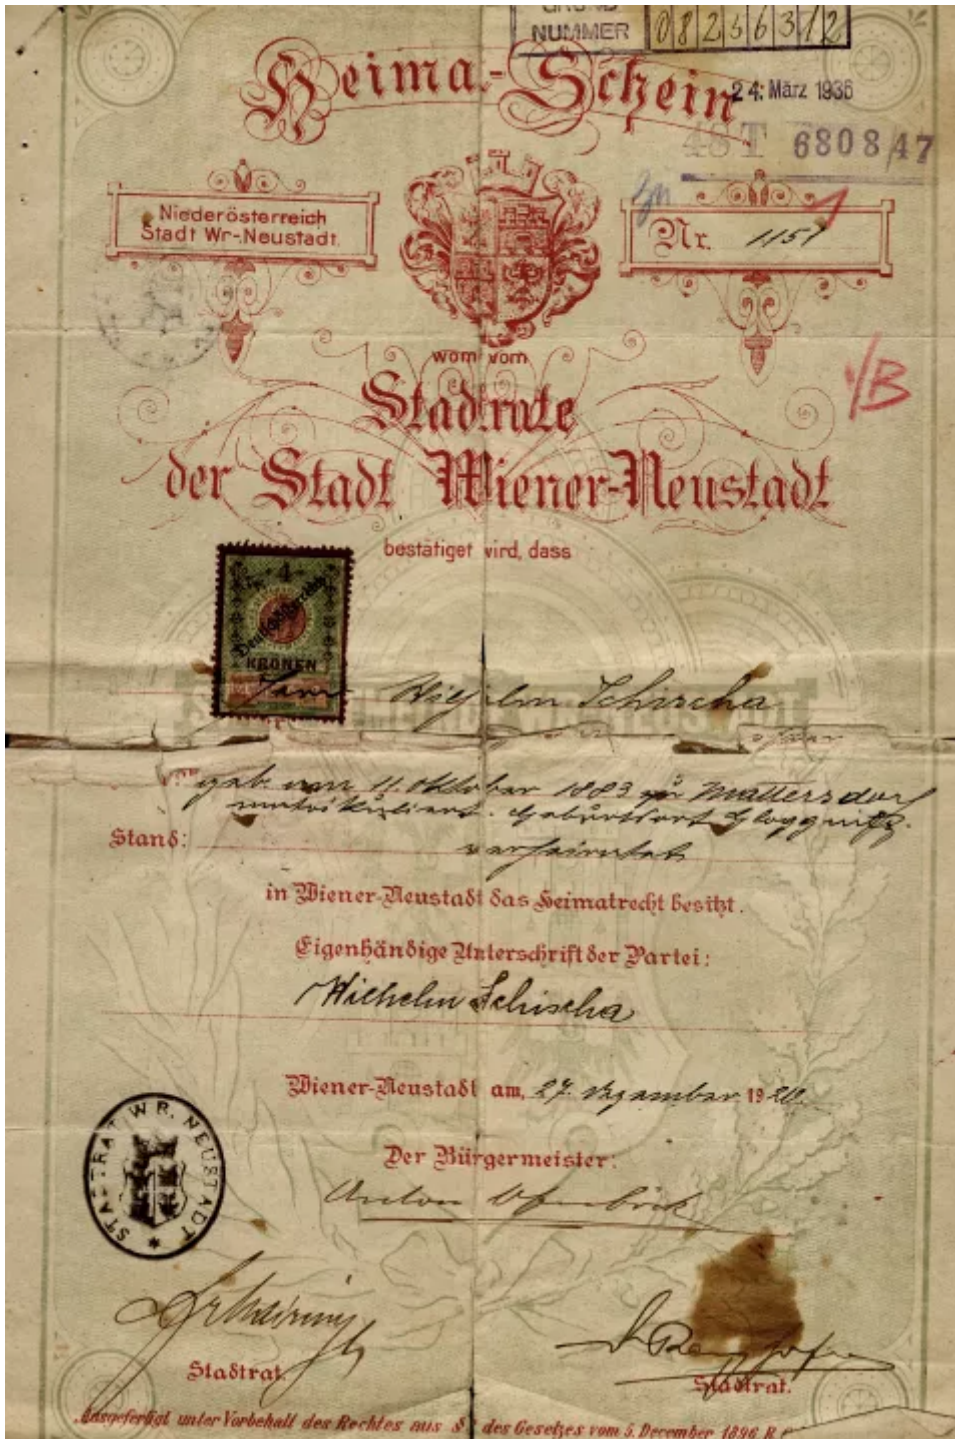 GRUND
NUMMER 08256312
Heima-Schein
24. März 1936
48 T 6808/47
Niederösterreich
Stadt Wr.-Neustadt.
Nr. 1151
1/B
wom vom
Stadtrate
der Stadt Wiener-Neustadt
bestätiget wird, dass
4
Deutschösterreich
KRONEN
Herrn Wilhelm Schischa
geb. am 11. Oktober 1883 zu Mattersdorf
matrikuliert. Geburtsort Gloggnitz.
Stand: verheiratet
in Wiener-Neustadt das Heimatrecht besitzt.
Eigenhändige Unterschrift der Partei:
Wilhelm Schischa
Wiener-Neustadt am, 27. Dezember 1920.
STADTRAT WR. NEUSTADT
Der Bürgermeister:
Anton Ofenböck
Stadtrat.
Stadtrat.
Ausgefertigt unter Vorbehalt des Rechtes aus § des Gesetzes vom 5. December 1896 R.